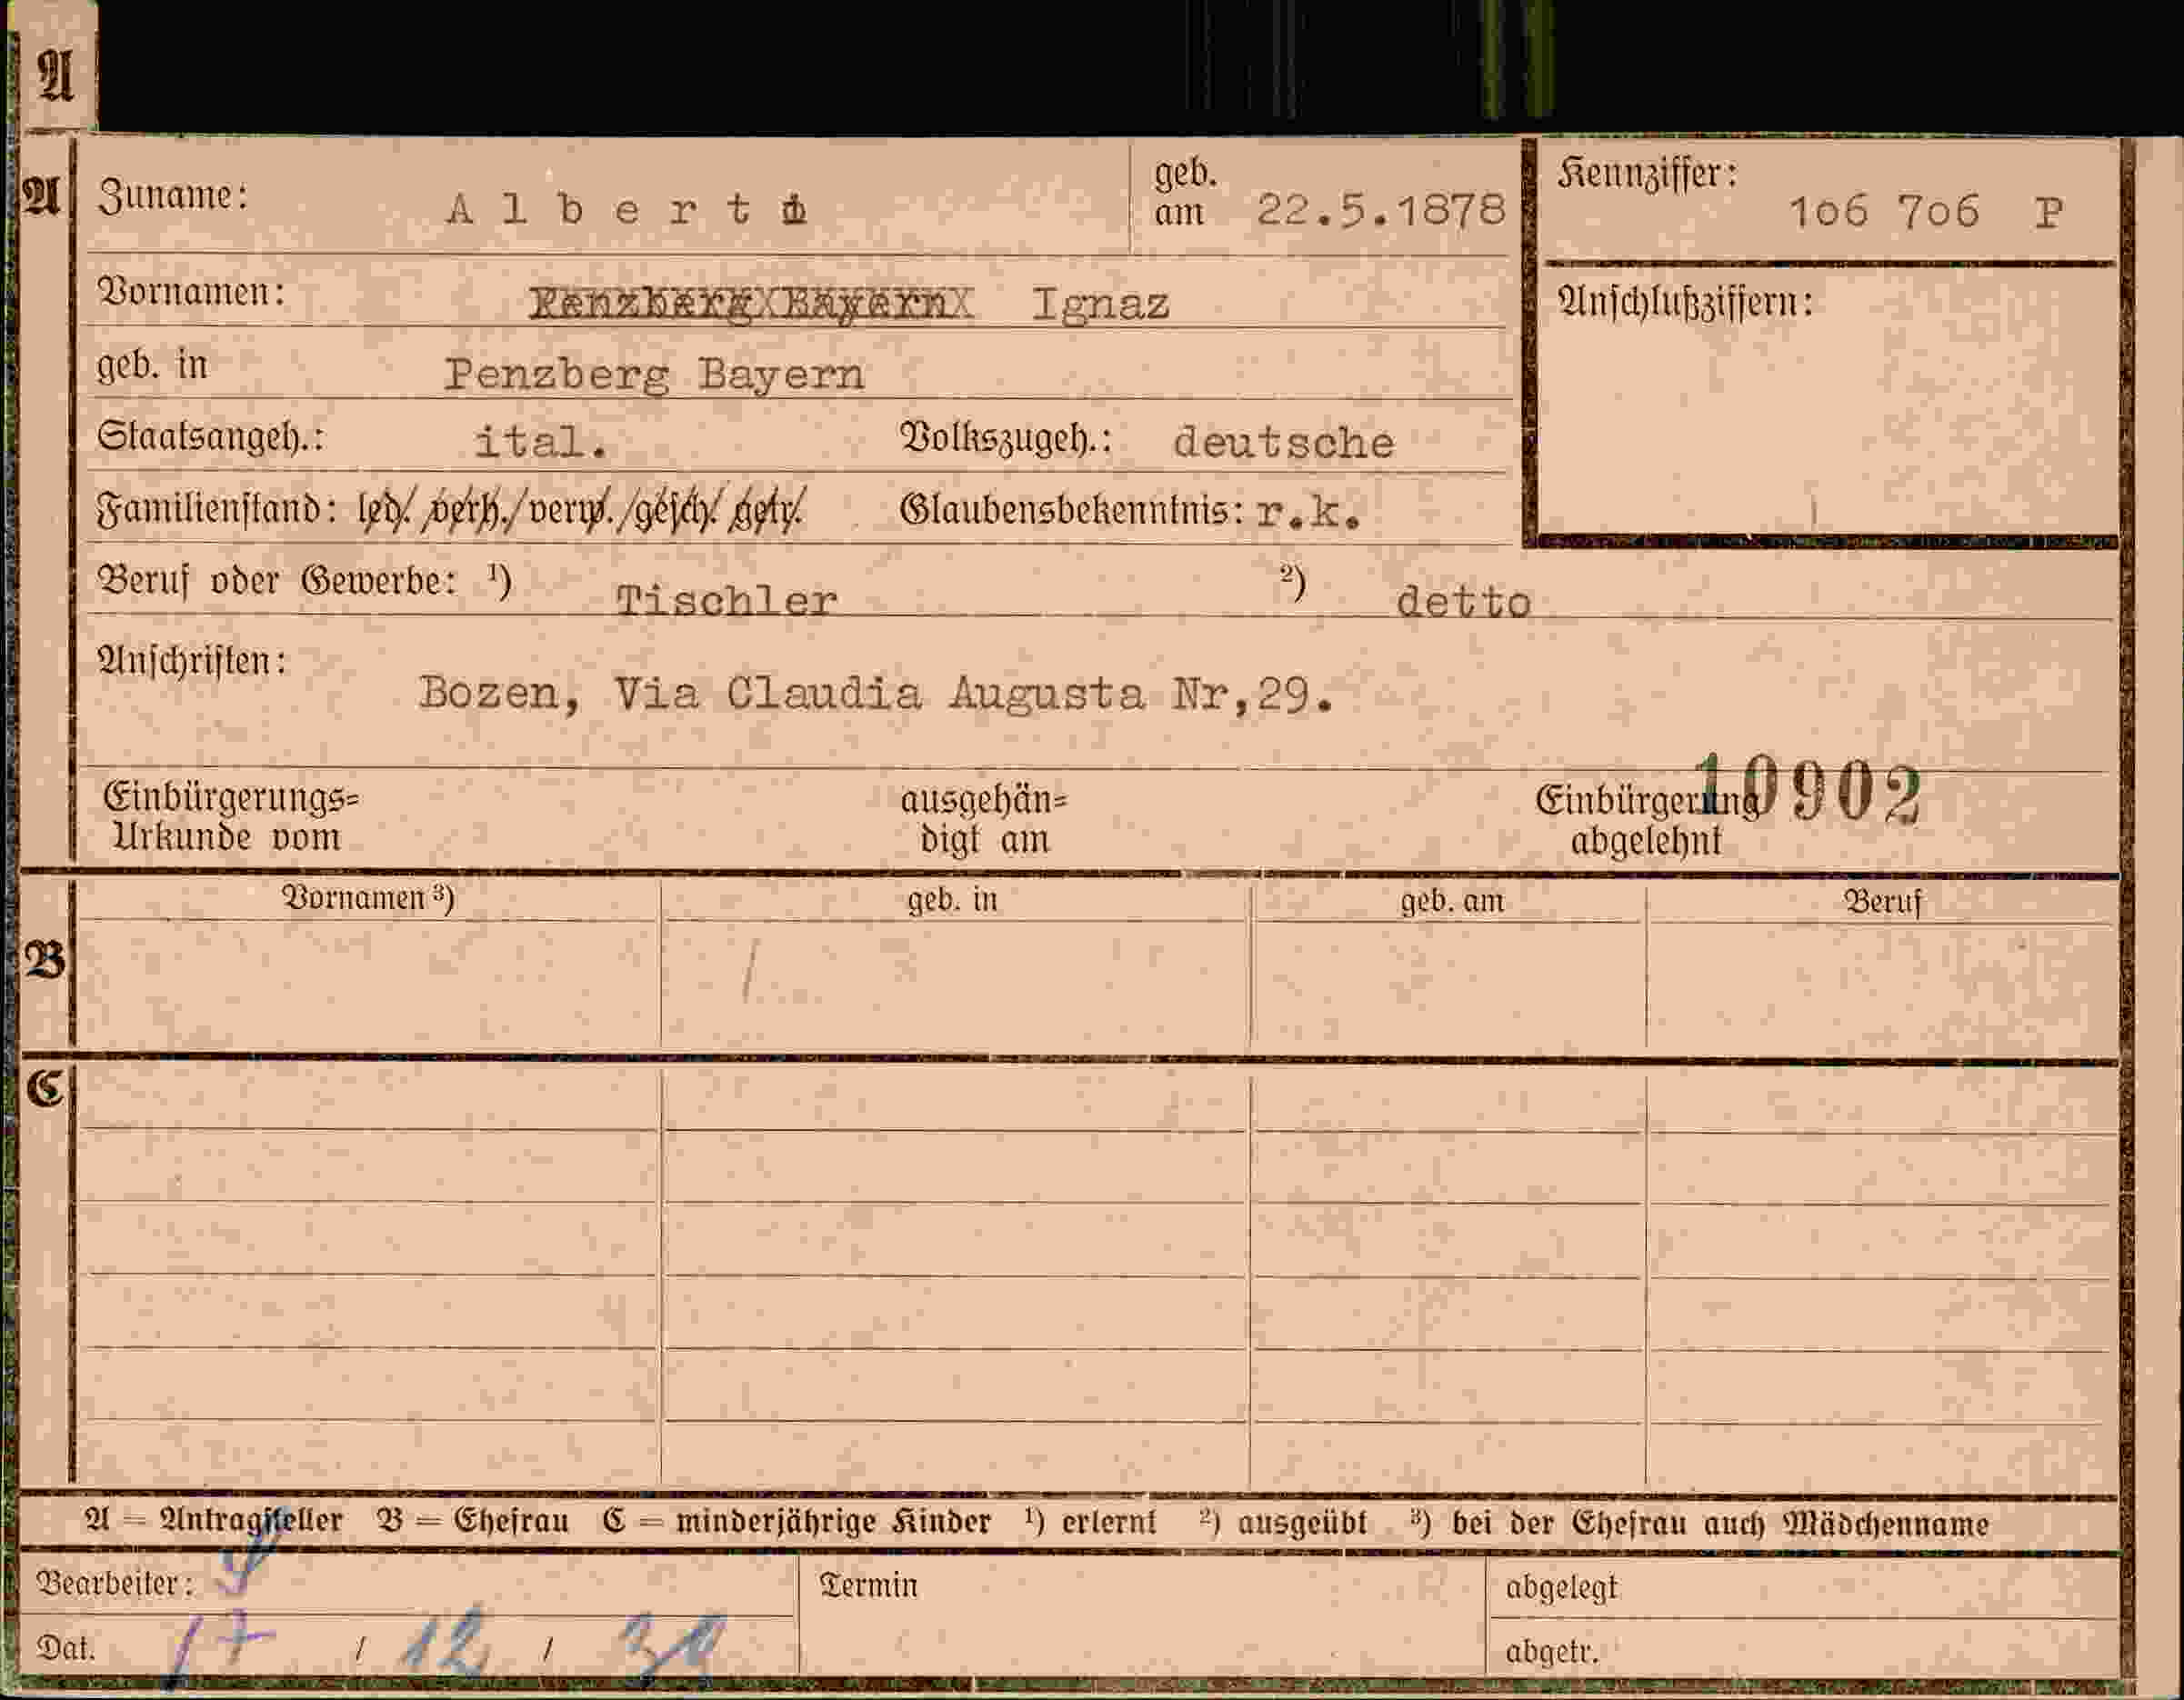 A
A
Zuname: Alberti
geb. am 22.5.1878
Kennziffer: 1o6 7o6 P
Vornamen: Penzberg Bayern Ignaz
Anschlußziffern:
geb. in Penzberg Bayern
Staatsangeh.: ital. Volkszugeh.: deutsche
Familienstand: led./verh./verw./gesch./getr. Glaubensbekenntnis: r.k.
Beruf oder Gewerbe: ¹) Tischler ²) detto
Anschriften:
Bozen, Via Claudia Augusta Nr,29.
10902
Einbürgerungs= ausgehän= Einbürgerung
Urkunde vom digt am abgelehnt
Vornamen ³) geb. in geb. am Beruf
B
C
A = Antragsteller B = Ehefrau C = minderjährige Kinder ¹) erlernt ²) ausgeübt ³) bei der Ehefrau auch Mädchenname
Bearbeiter: Termin abgelegt
Dat. 17 / 12 / 39 abgetr.